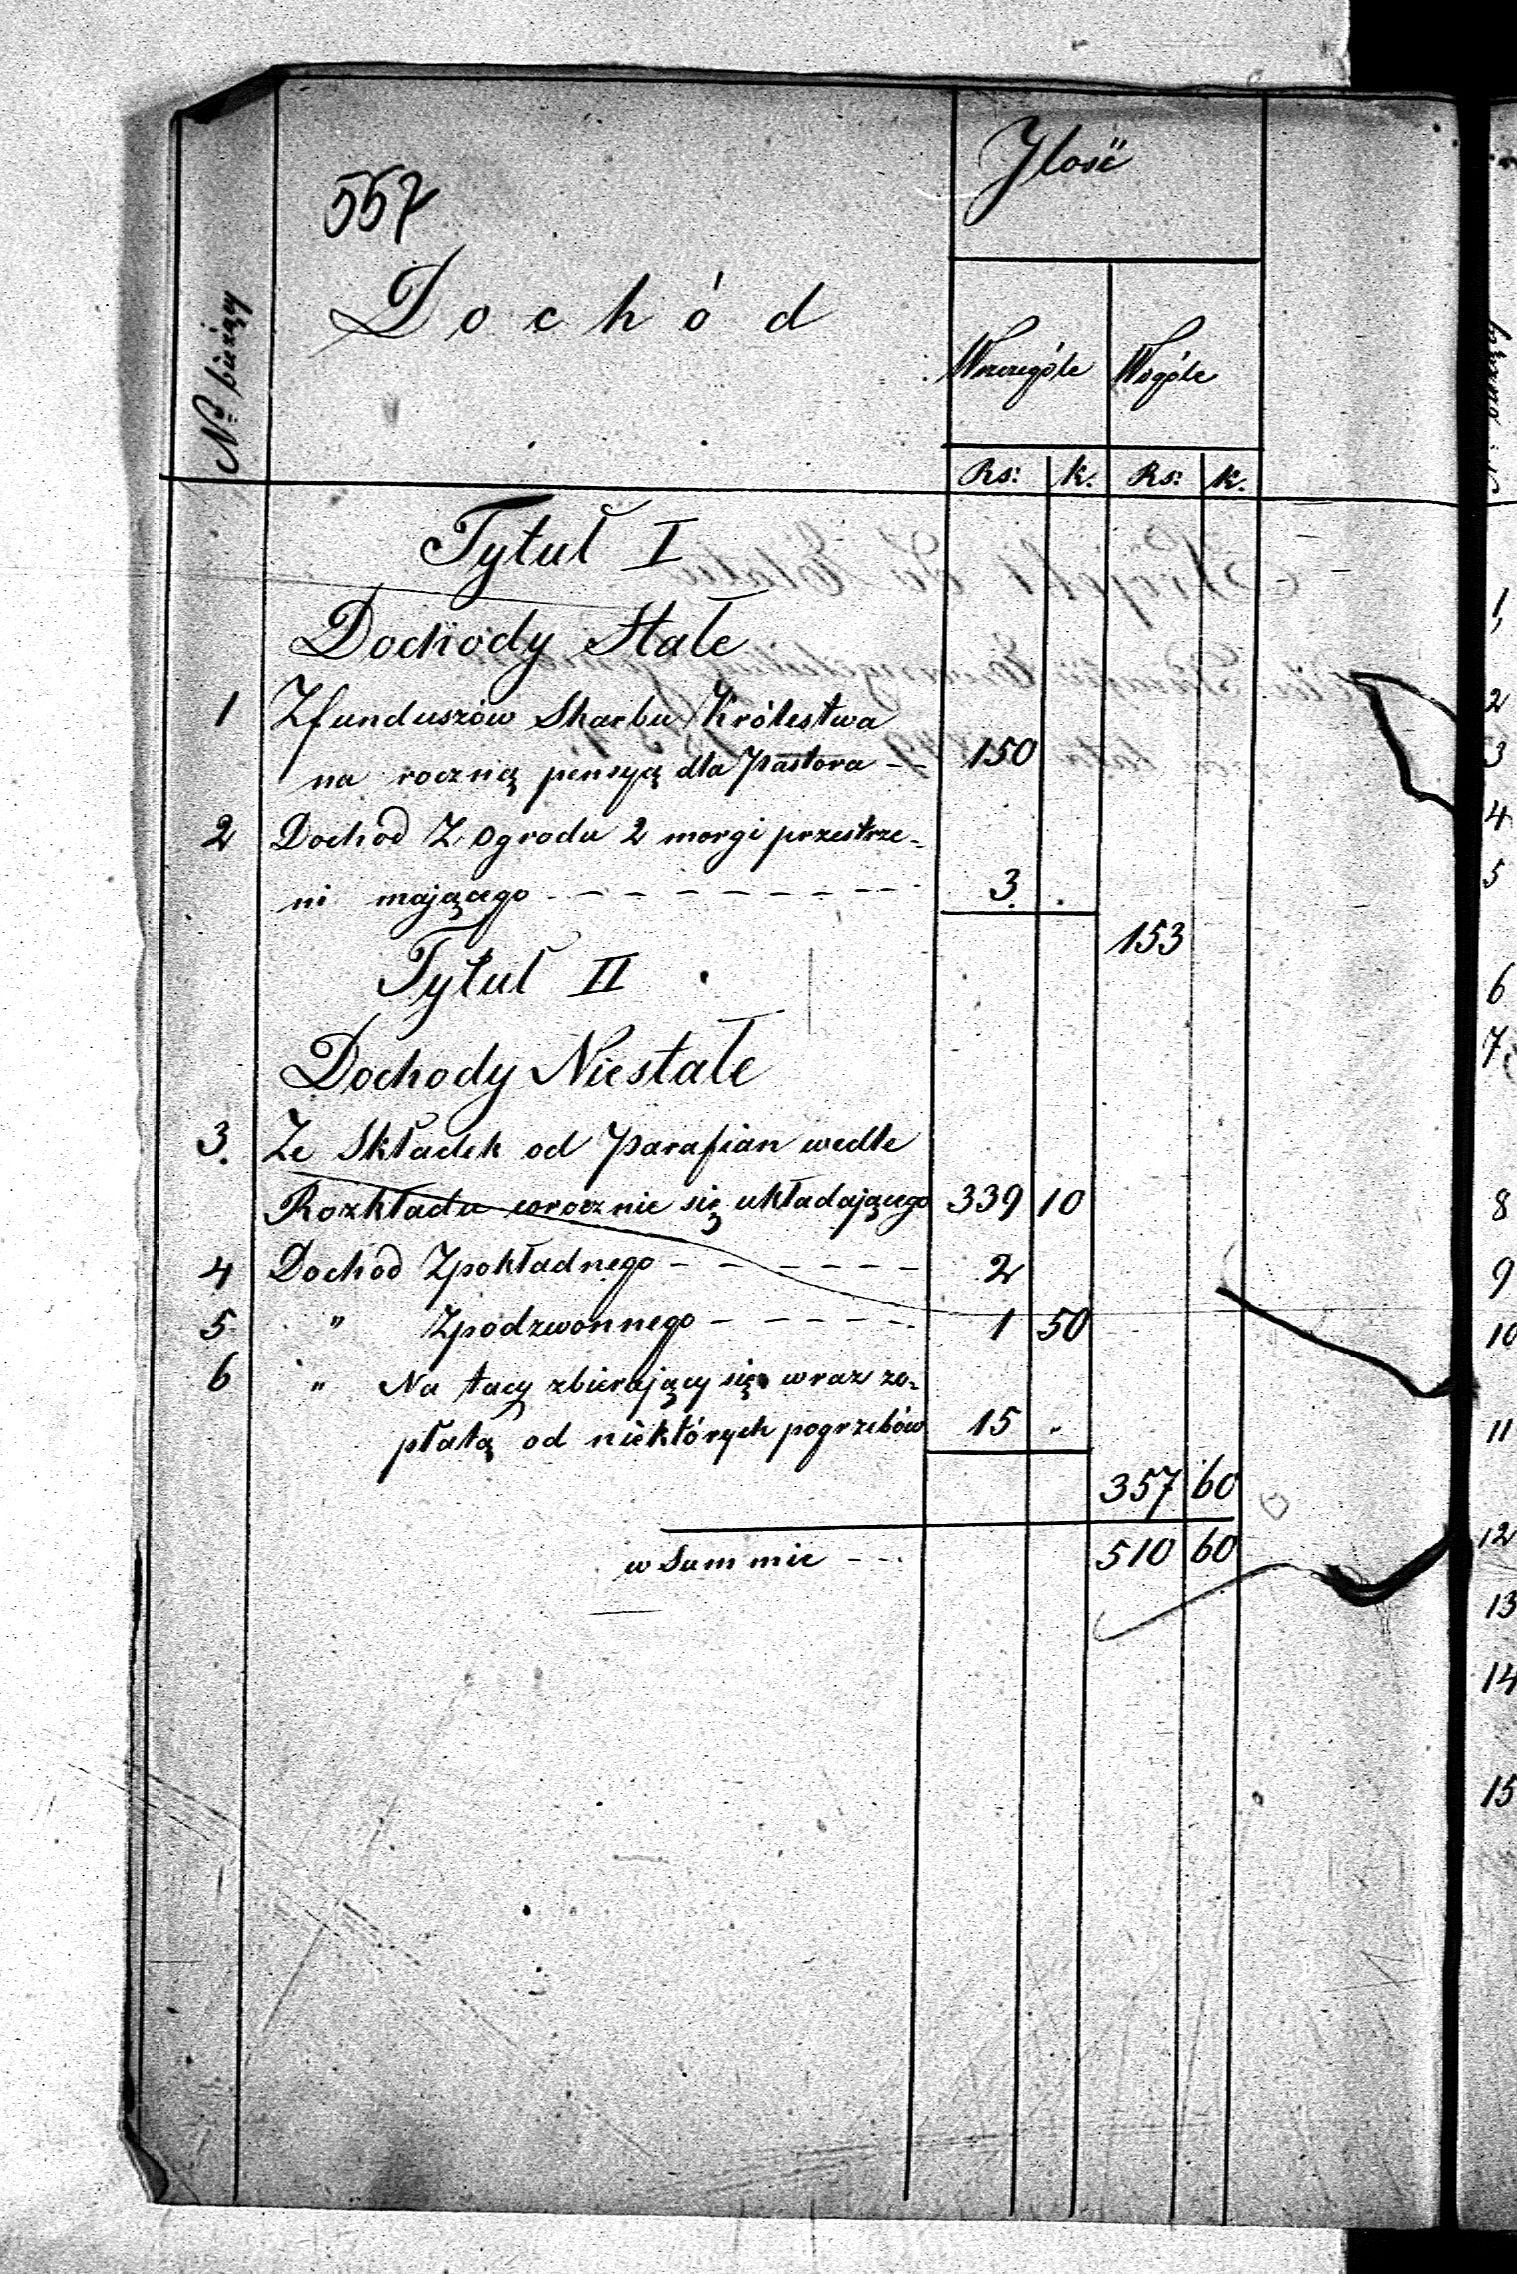 557
Ilość
Dochód
№ bieżący
Wszczególe Wogóle
Rs: k. Rs: k.
Tytuł I
Dochody Stałe
1 Z funduszów Skarbu Królestwa
na roczną pensyą dla Pastora -- 150
2 Dochod Z ogrodu 2 morgi przestrze-
ni mającego --------- 3 .
153
Tytuł II
Dochody Niestałe
3. Ze Składek od Parafian wedle
Rozkładu corocznie się układającego 339 10
4 Dochod Z pokładnego ------ 2
5 " Z podzwonnego ----- 1 50
6 " Na tacy zbierający się wraz zo-
płatą od niektórych pogrzebów 15 .
357 60
w Summie --- 510 60
1,
2
3
4
5
6
7
8
9
10
11
12
13
14
15